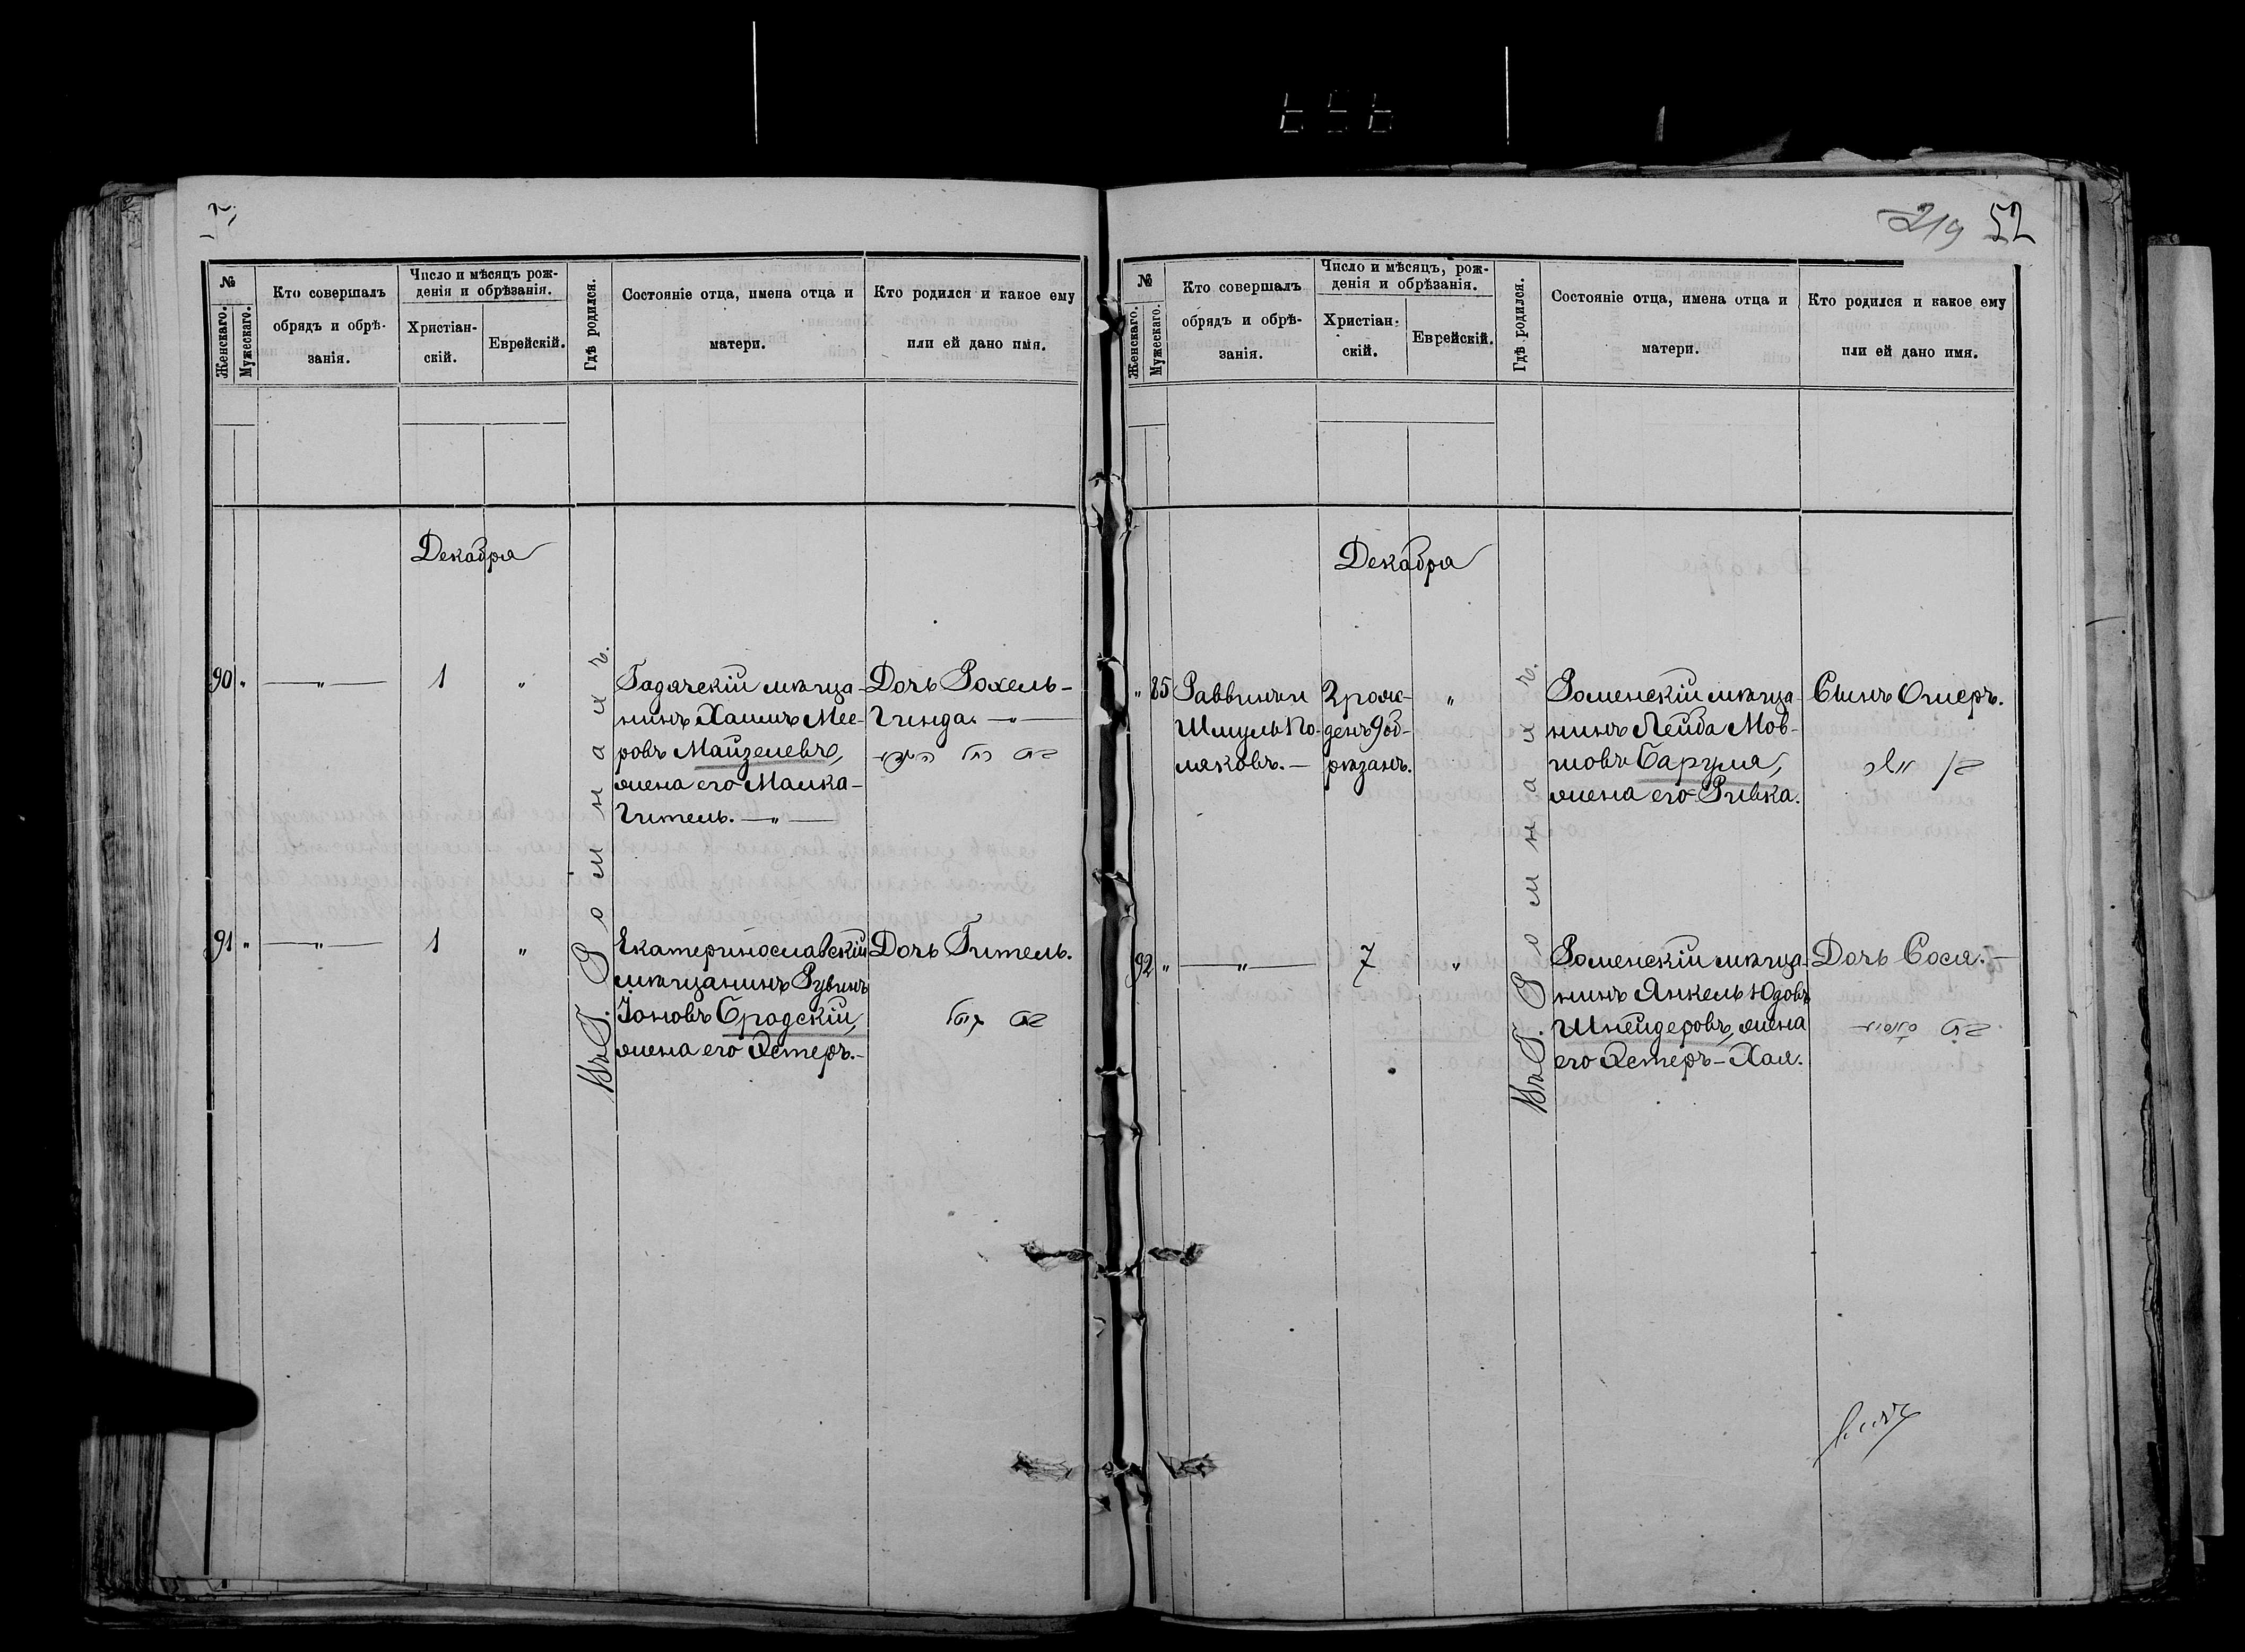 219 52
№
Женскаго.
Мужескаго.
Кто совершалъ
обрядъ и обрѣ-
занія.
Число и мѣсяцъ рож-
денія и обрѣзанія.
Христіан-
скій.
Еврейскій.
Гдѣ родился.
Состояніе отца, имена отца и
матери.
Кто родился и какое ему
или ей дано имя.
Декабря
90 " —"— 1 "
Въ Г. Ромнахъ.
Гадячскій мѣща-
нинъ Хаимъ Мее-
ровъ Майзелевъ,
жена его Малка-
Гитель. —"—
Дочь Рохель-
Гинда. —"—
91 " —"— 1 "
Екатеринославскій
мѣщанинъ Рувинъ
Іоновъ Бродскій,
жена его Эстеръ.-
Дочь Гитель.
שם גיטל
№
Женскаго.
Мужескаго.
Кто совершалъ
обрядъ и обрѣ-
занія.
Число и мѣсяцъ, рож-
денія и обрѣзанія.
Христіан-
скій.
Еврейскій.
Гдѣ родился.
Состояніе отца, имена отца и
матери.
Кто родился и какое ему
или ей дано имя.
Декабря
" 85
Раввинъ и
Шмуль По-
ляковъ. —
2 рож-
денъ 9 об-
рѣзанъ.
"
Въ Г. Ромнахъ.
Роменскій мѣща-
нинъ Лейба Мов-
шовъ Баргуля,
жена его Ривка.
Сынъ Ошеръ.
92 " —"— 7 "
Роменскій мѣща-
нинъ Янкель Юдовъ
Шнейдеровъ, жена
его Эстеръ-Хая.
Дочь Сося. —